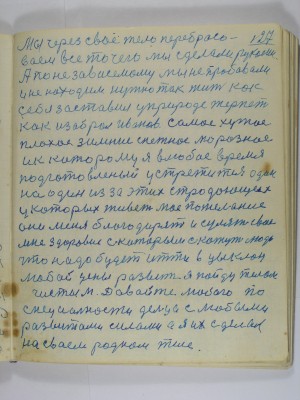 127
Мы через своё тело перебрасо-
ваем все то чего мы сделали руками
А по не зависемому мы не пробовали
и не находим нужно так жит как
себя заставил у природе терпет
как избрал Иванов. Самое хужое
плохое зимние снежное морозное
и к которому я в любое время
подготовленый устретится один
на один из за этих
у которых живет мое пожелание
они меня благодарят и сулят свае
мне здоровие с которым скажут люди
что надо будет итти в
любой цены развит. Я пойду телом
чистым. Давайте любого по
специалности делца с любыми
развитыми силами а я их сделаю
на своем родном теле.